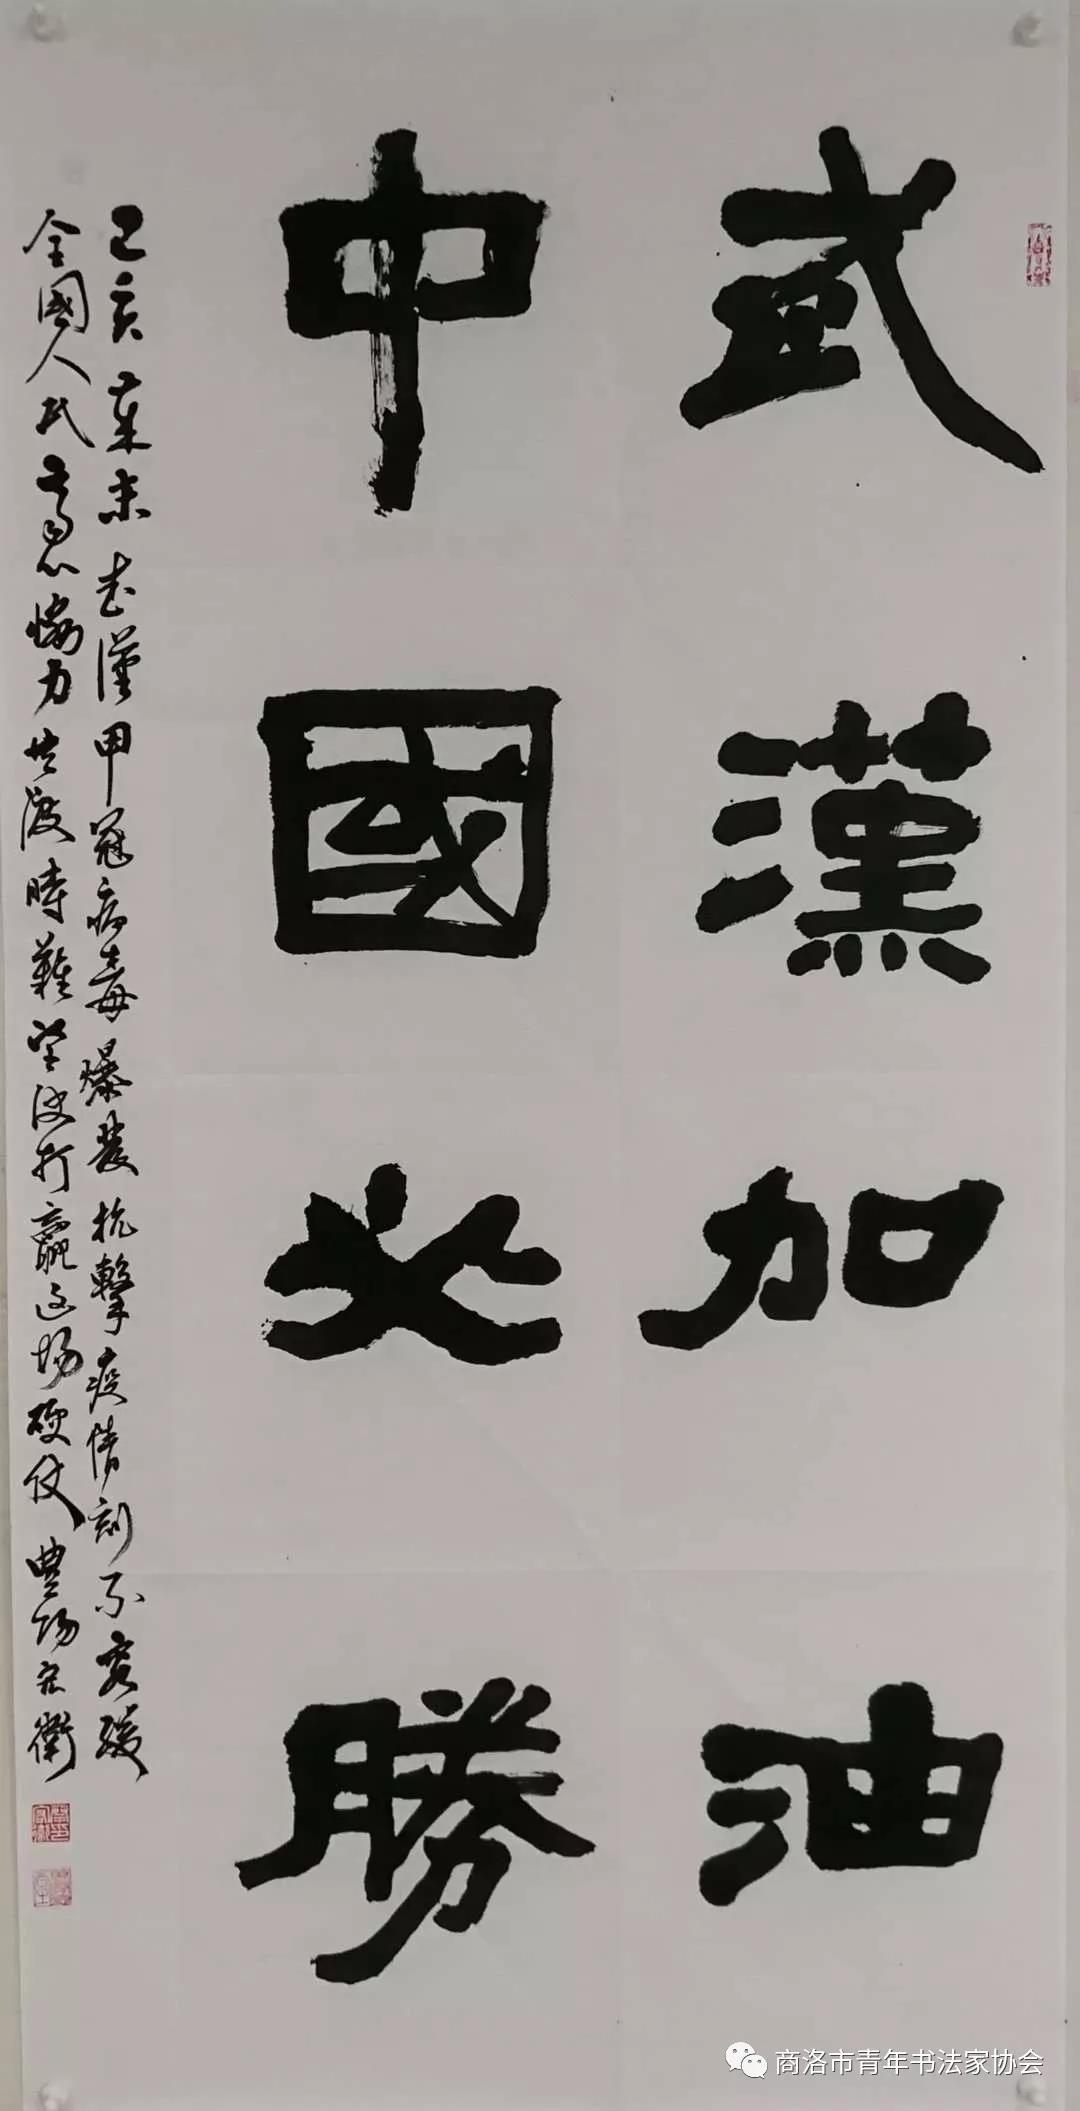 武漢加油
中國必勝
己亥年末武漢甲冠病毒爆發抗擊疫情刻不容緩
全國人民齊心協力共渡時難堅決打贏這場硬仗豐陽宏衛
商洛市青年书法家协会